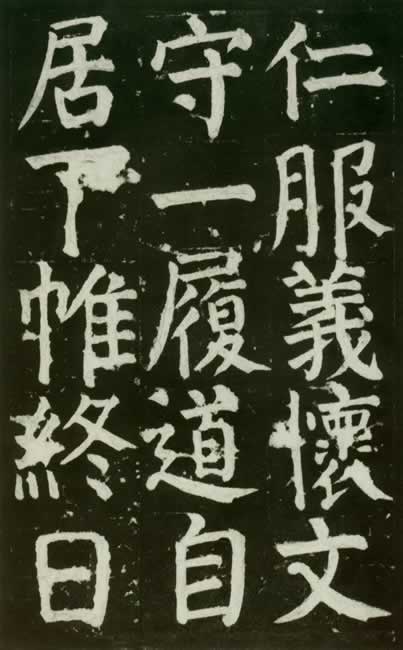 仁服義懷文
守一履道自
居下帷終日